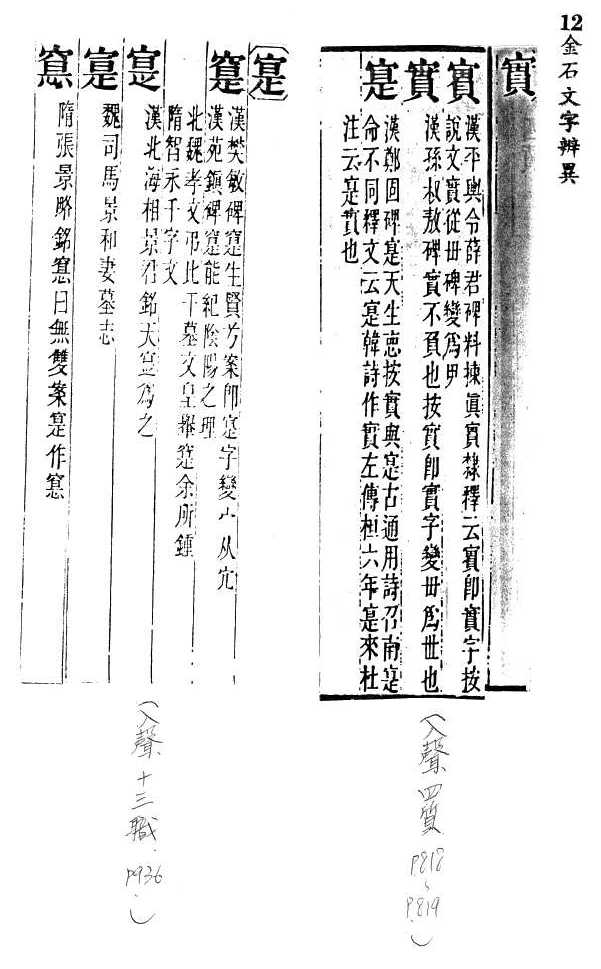 12金石文字辨異
實
𡩀漢平輿令薛君碑料揀真實隸釋云𡩀即實字按
說文實從毌碑變為毋
實漢孫叔敖碑實不負也按實即實字變毌為世也
寔漢鄭固碑寔天生悳按實與寔古通用詩召南寔
命不同釋文云寔韓詩作實左傳桓六年寔來杜
注云寔實也
(入聲四質
P818
P819)
〔寔〕
窴漢樊敏碑寔生賢方案即寔字變宀从穴
漢苑鎮碑寔能紀陰陽之理
北魏孝文弔比干墓文皇舉寔余所鍾
隋智永千字文
寔漢北海相景君銘天寔為之
寔魏司馬景和妻墓志
窹隋張景略銘寔日無雙案寔作窹
(入聲十三職
P936)